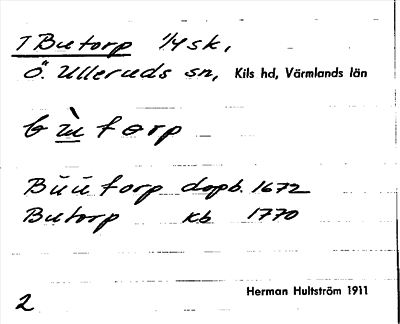 1 Butorp 1/4 sk,
Ö. Ulleruds sn, Kils hd, Värmlands län
bù̲torp
Bŭŭtorp dopb. 1672
Butorp kb 1770
2 Herman Hultström 1911